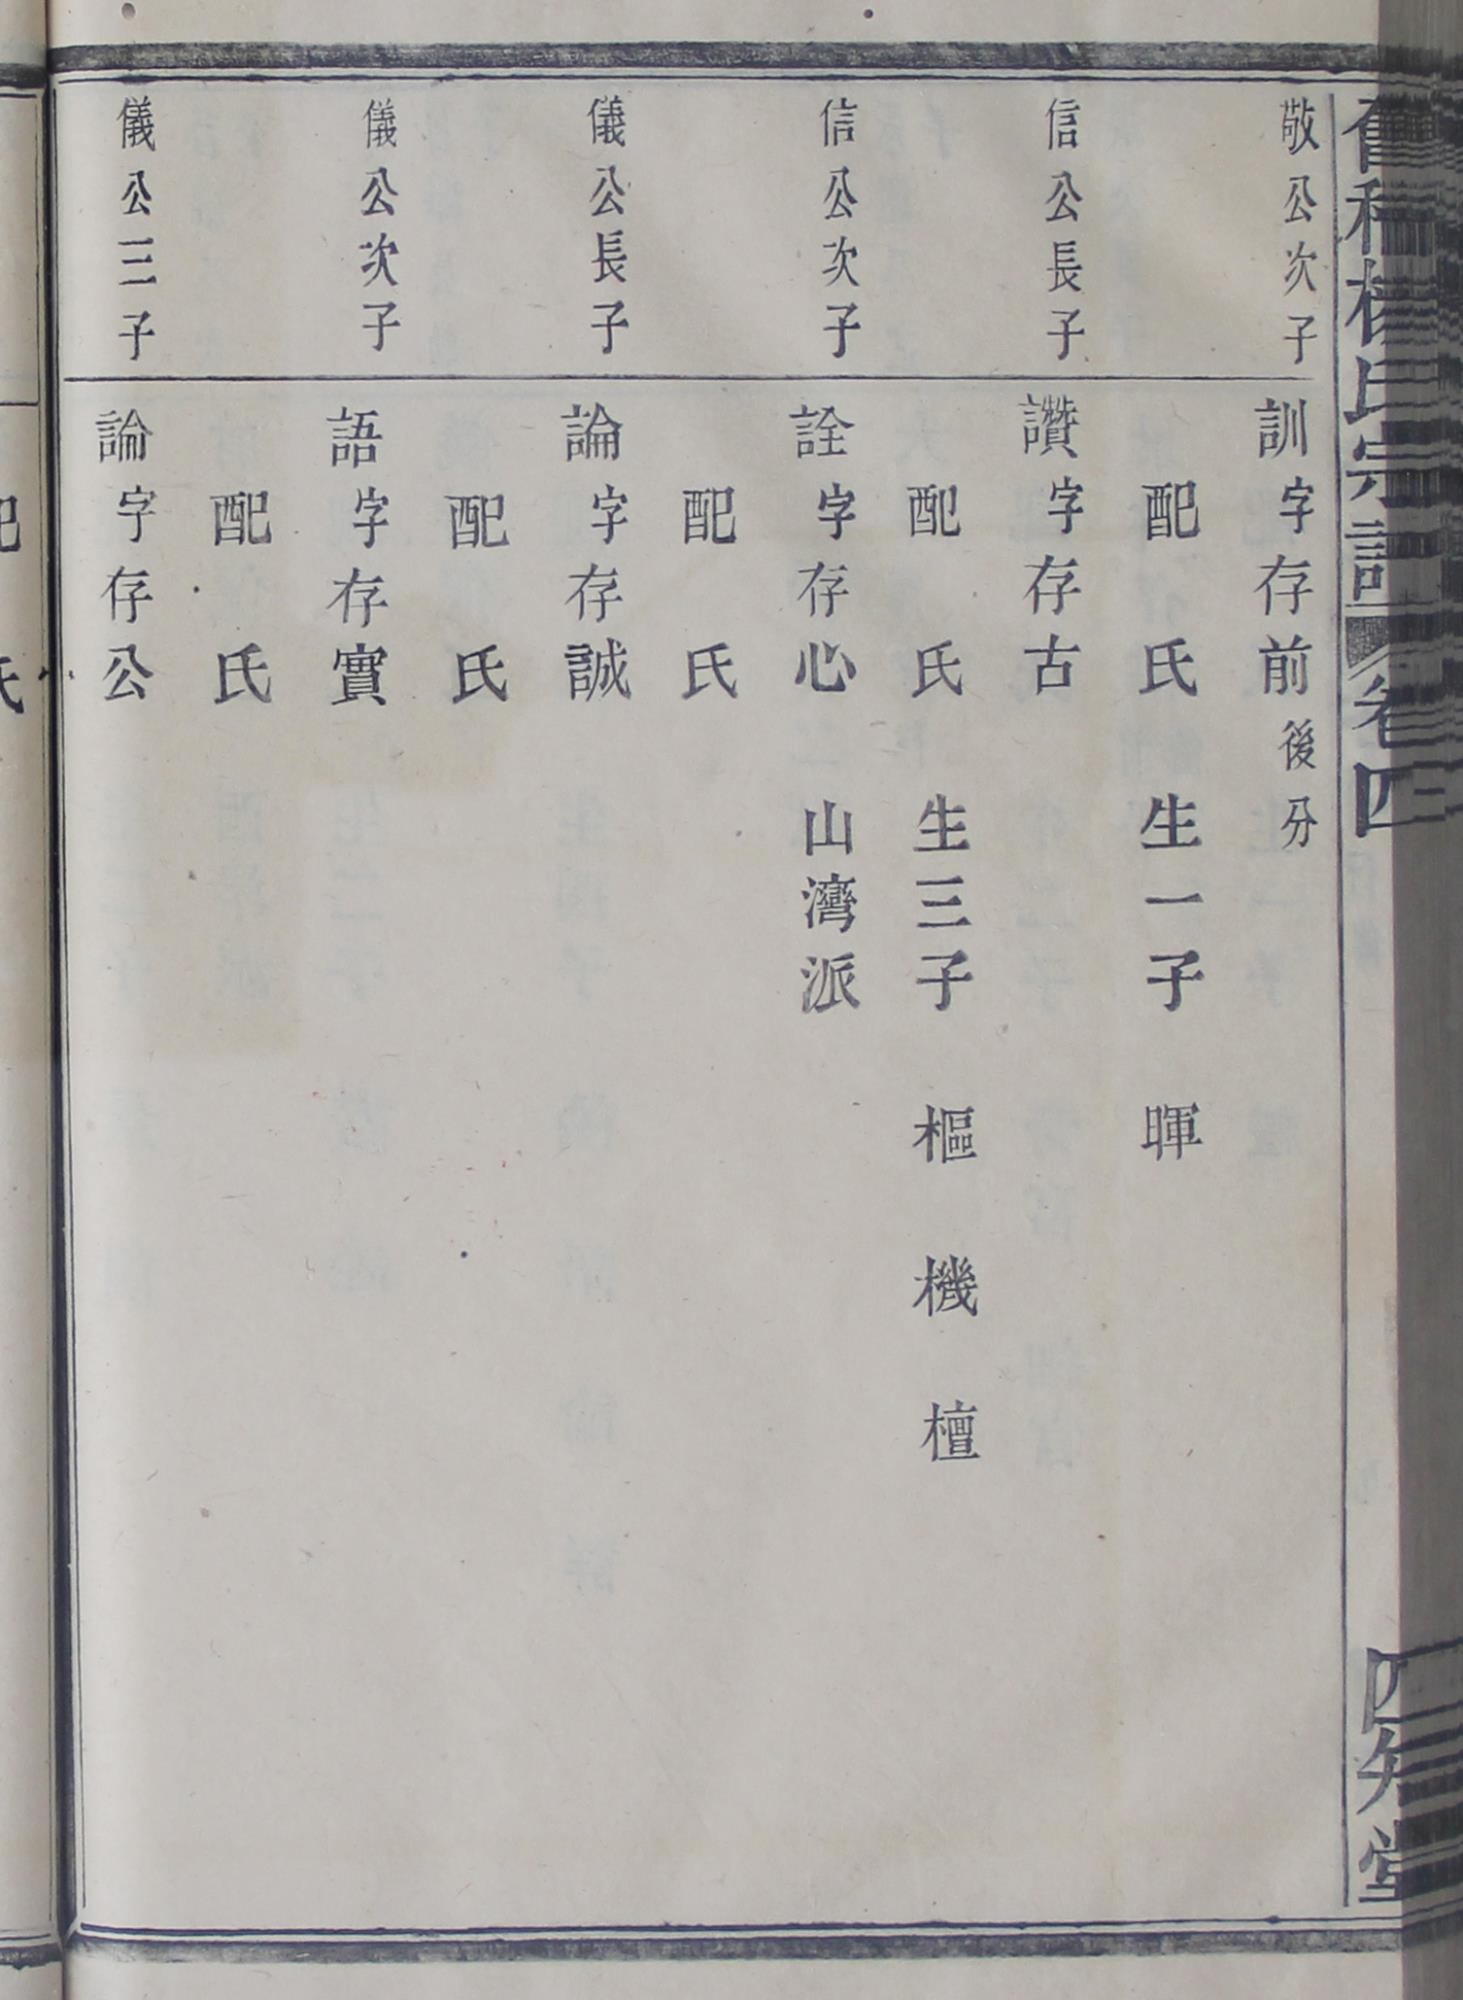 楊氏宗譜 卷四 四知堂
敬公次子
訓字存前後分
配 氏 生一子 暉
信公長子
讚字存古
配 氏 生三子 樞 機 檀
信公次子
詮字存心 山灣派
配 氏
儀公長子
論字存誠
配 氏
儀公次子
語字存實
配 氏
儀公三子
論字存公